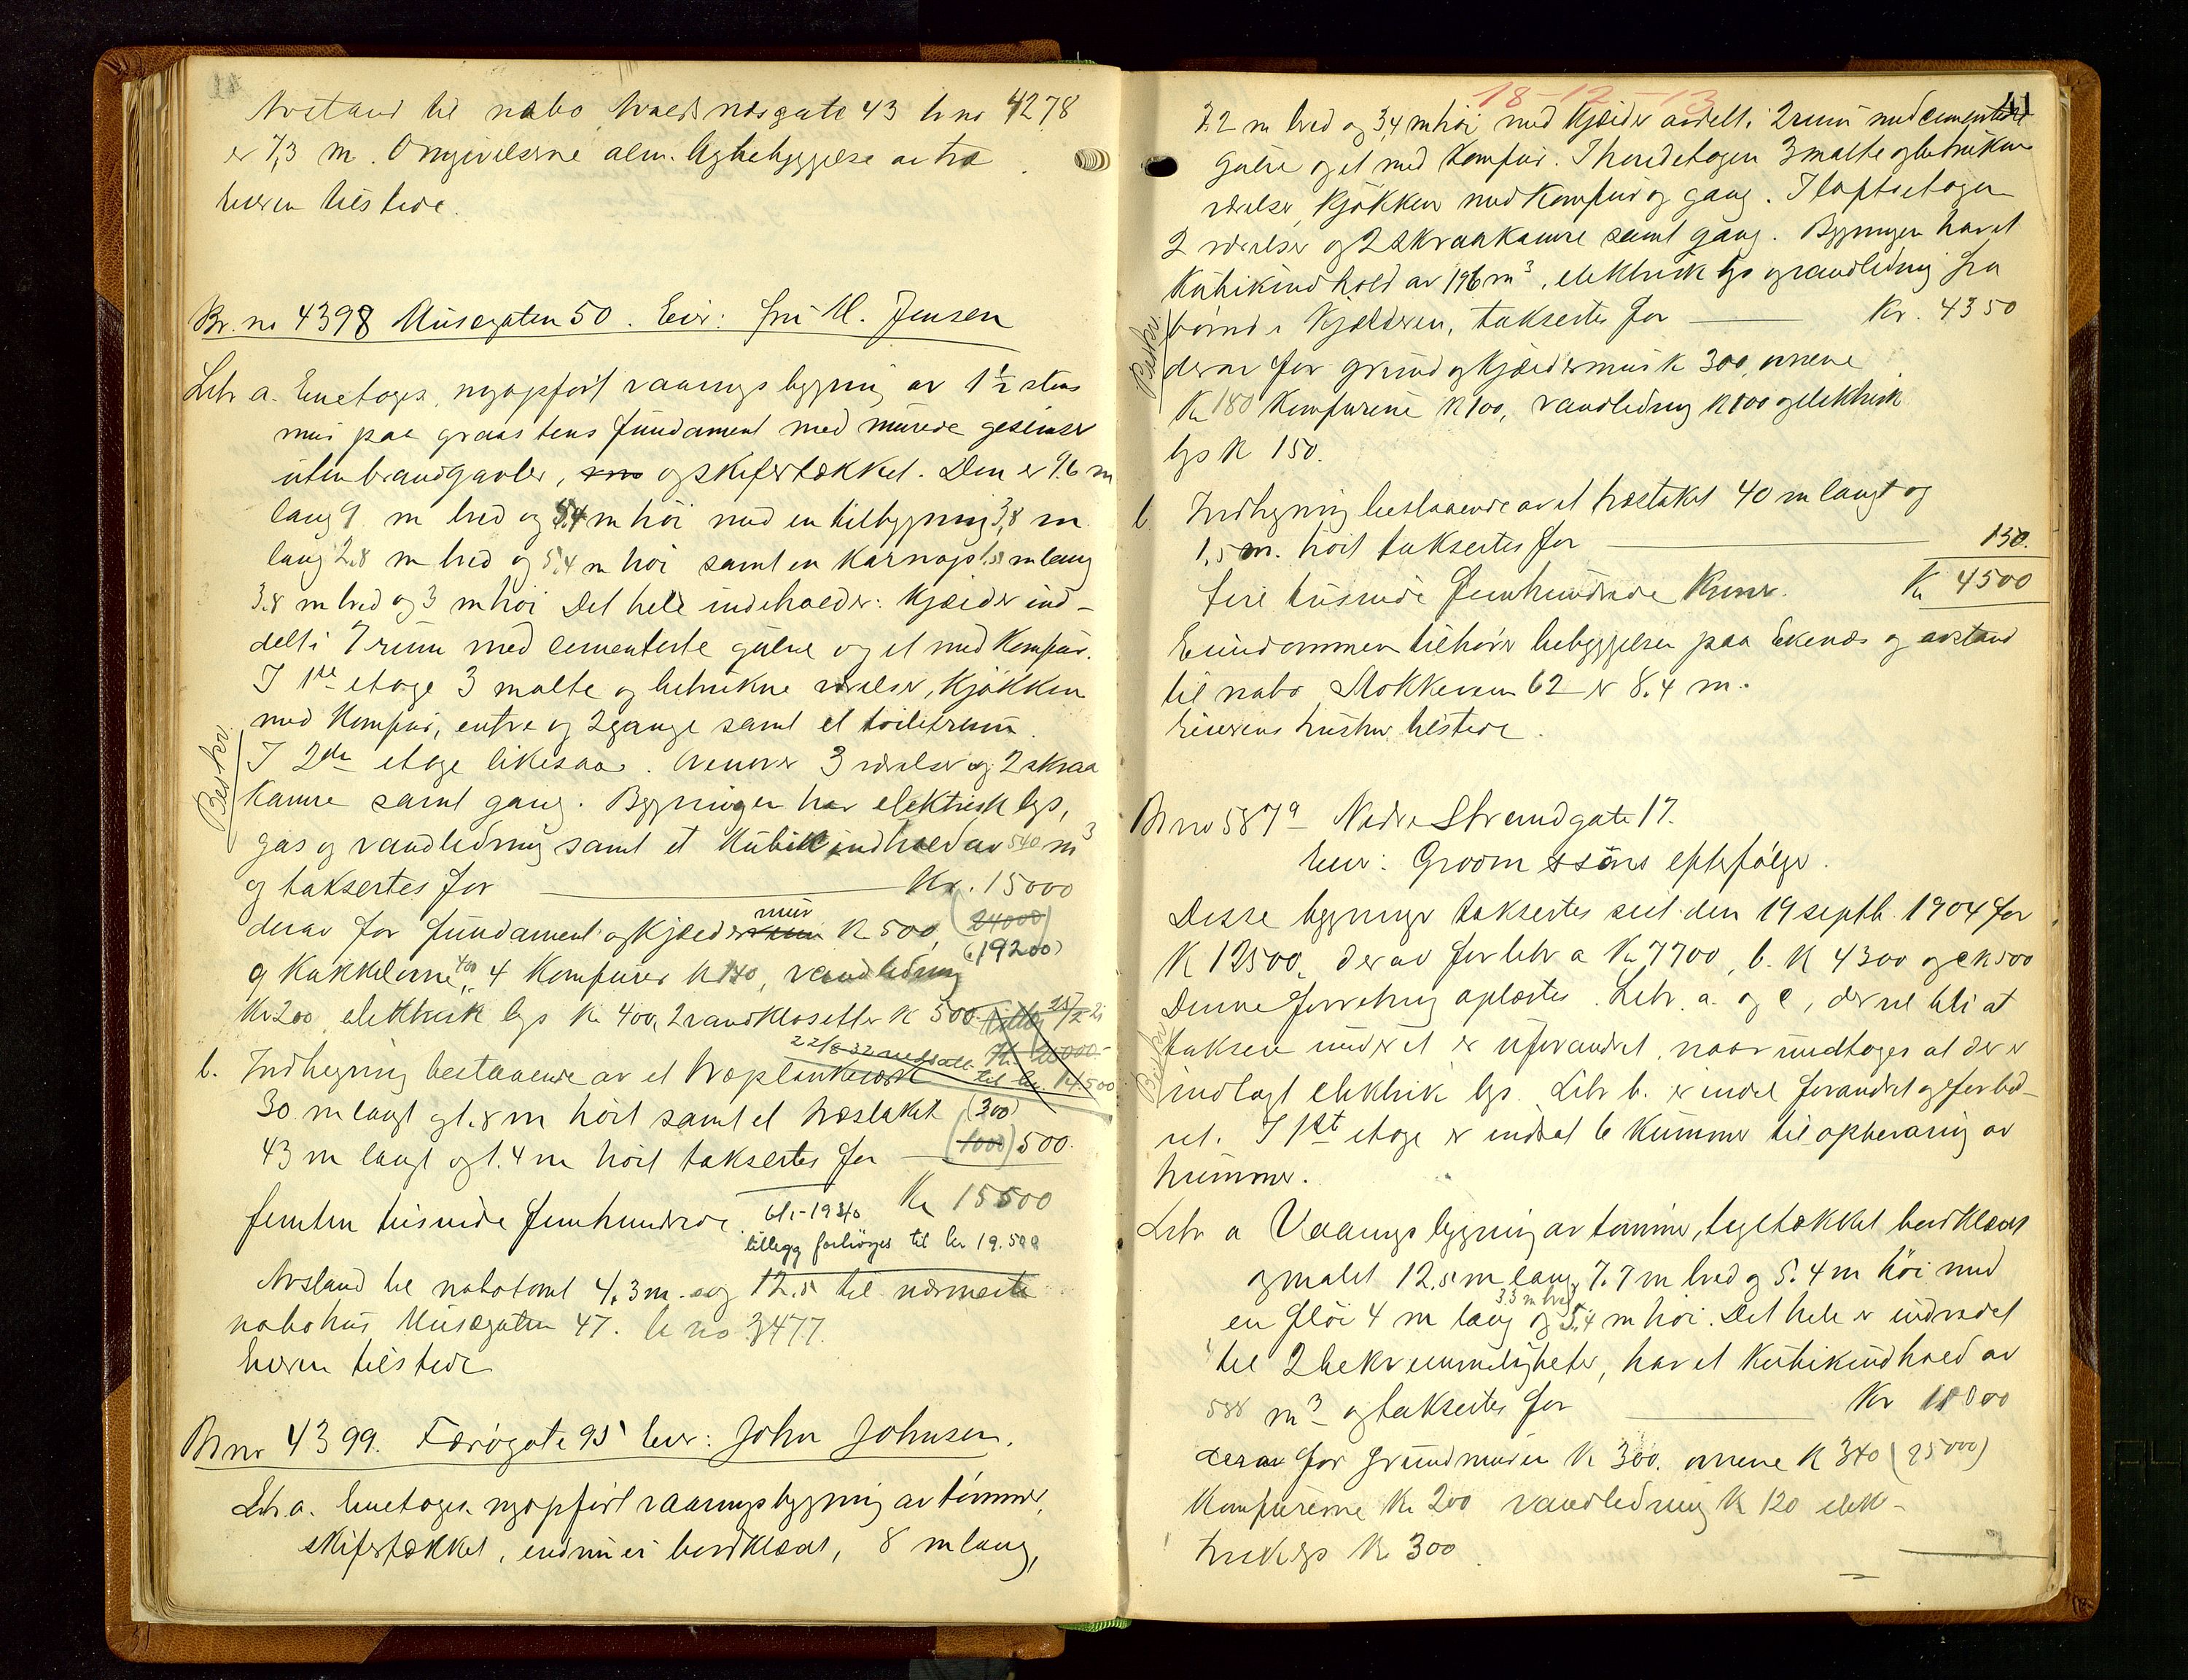 Avstand til nabo Hvalsnesgate 43 br no 4278
er 7,3 m. Omgivelserne alm. bybebyggelse av træ
Eieren tilstede.
Br. no 4398 Musegaten 50. Eier: fru M. Jensen
Litr a. Enetages nyopført vaanings bygning av 1 1/2 stens
mur paa graastens fundament med murede gesimser
uten brandgavler, og skifertækket. Den er 9.6 m
lang 9 m bred og 5.4 m høi med en tilbygning 3,8 m
lang 2.8 m bred og 5.4 m høi samt en karnap 1.5 m lang
3.8 m bred og 3 m høi Det hele indeholder: Kjælder ind-
delt i 7 rum med cementerte gulve og et med komfur.
I 1ste etage 3 malte og betrukne værelser, kjøkken
med komfur, entre og 2 gange samt et toiletrum.
I 2den etage likesaa. Ovenover 3 værelser og 2 skraa
kamre samt gang. Bygningen har elektrisk lys,
gas og vandledning samt et kubikindhold av 540 m3
Beskr.
og taksertes for Kr. 15000
derav for fundament og kjælder mur K 500, (24000)
(19200)
9 kakkelovne 400 4 komfurer K 140, vandledning
Kr 200 elektrisk lys Kr 400, 2 vandklosetter K 500
22/8 32 nedsatt til kr. 14.500
b. Indhegning bestaaende av et træplankeværk
30 m langt og 1.8 m høit samt et træstaket (300)
43 m langt og 1.4 m høit taksertes for (1000) 500.
femten tusinde femhundrede Kr 15500
6/1-1940
tillegg forhøyes til kr 19.500
Avstand til nabotomt 4,3 m. og 12.5 til nærmeste
nabohus Musegaten 47. br no 3477.
Eieren tilstede
Br no 4399. Færøgate 95 Eier: John Johnsen.
Litr a. Enetages nyopført vaaningsbygning av tømmer,
skifertækket, endnu ei bordklædt, 8 m lang,
18-12-13
41
7.2 m bred og 3,4 m høi med kjælder avdelt i 2 rum med cementerte
gulve og et med komfur. I hovedetagen 3 malte og betrukne
værelser, kjøkken med komfur og gang. I loftsetagen
2 værelser og 2 skraakamre samt gang. Bygningen har et
kubikindhold av 196 m3, elektrisk lys og vandledning fra
brønd i kjælderen, taksertes for Kr. 4350
Beskr.
derav for grund og kjældermur K 300, ovnene
Kr 180 komfurene K 100, vandledning K 100 og elektrisk
lys K 150.
b. Indhegning bestaaende av et træstaket 40 m langt og
1,5 m. høit taksertes for 150.
fire tusinde femhundrede Kroner. Kr 4500
Eiendommen tilhører bebyggelsen paa Ekenæs og avstand
til nabo Stokkeveien 62 er 8.4 m.
Eierens hustru tilstede.
Br no 587a Nedre Strandgate 17.
Eier: Groom & søns efterfølger.
Disse bygninger taksertes sist den 19 septb. 1904 for
K 12500, derav for litr a Kr 7700, b. K 4300 og c K 500
Denne forretning oplæstes. Litr. a. og c, der vil bli at
taksere under et er uforandret, naar undtages at der er
Beskr
indlagt elektrisk lys. Litr b. er endel forandret og forbed-
ret. I 1ste etage er indsat 6 kummer til opbevaring av
hummer.
Litr a Vaanings bygning av tømmer, teglstækket bordklædt
og malet 12.5 m lang, 7.7 m bred og 5.4 m høi med
en fløi 4 m lang 3.5 m bred og 5.4 m høi. Det hele er indredet
til 2 bekvemmeligheter, har et kubikindhold av
588 m3 og taksertes for Kr 11000
derav for grundmuren K 300. ovnene K 340 (25000)
komfurerne Kr 200 vandledning K 120 elek-
trisk lys Kr 300